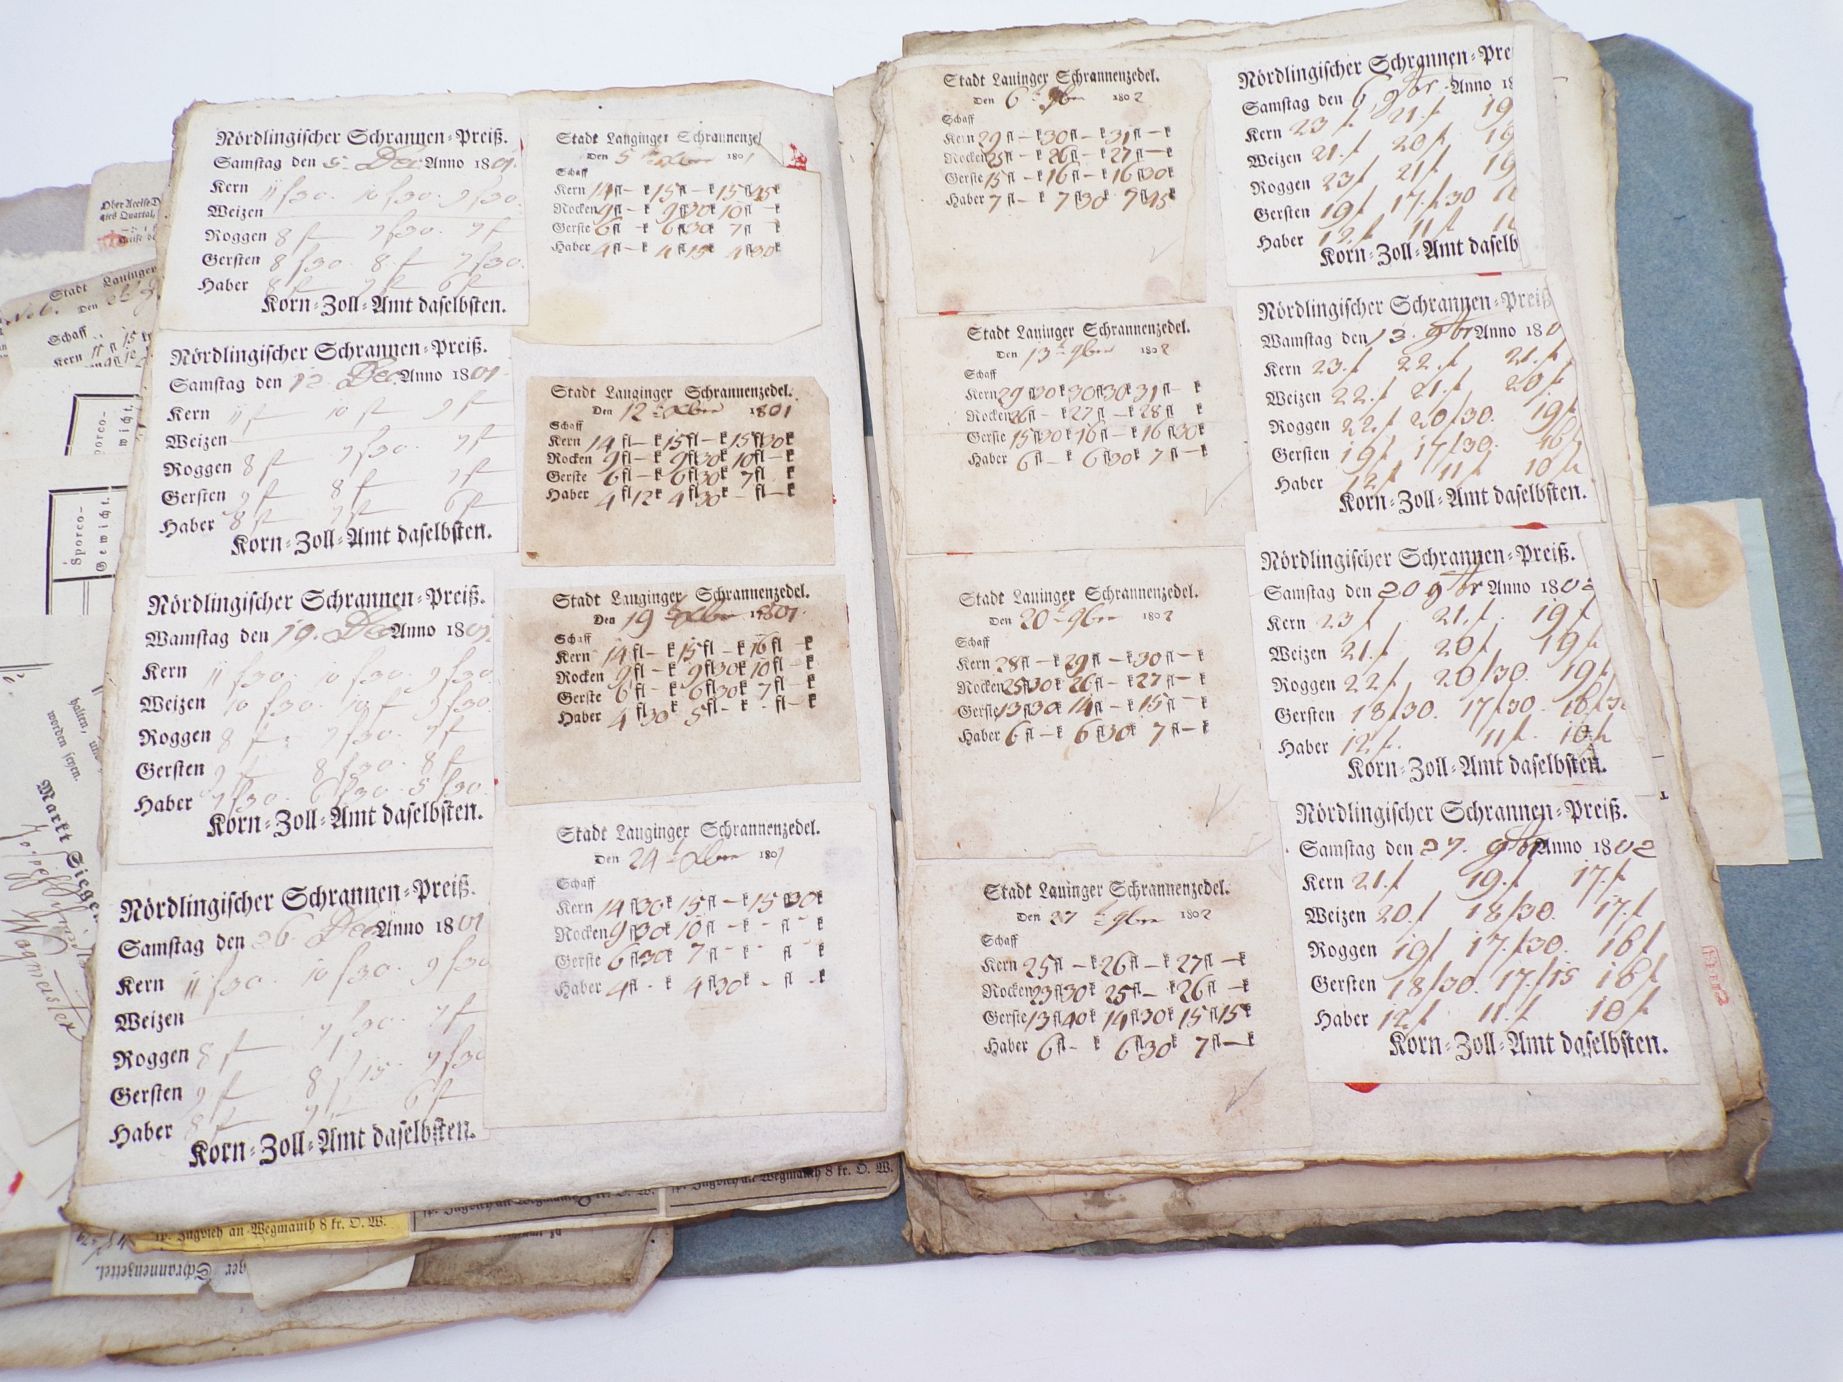 Nördlingischer Schrannen=Preiß.
Samstag den 5. Dec. Anno 1801.
Kern 11 f 30. 10 f 30. 9 f 30.
Weizen
Roggen 8 f 7 f 30. 7 f
Gersten 8 f 30. 8 f 7 f 30.
Haber 8 f 7 f 6 f
Korn=Zoll=Amt daselbsten.
Nördlingischer Schrannen=Preiß.
Samstag den 12. Dec. Anno 1801.
Kern 11 f 10 f 9 f
Weizen
Roggen 8 f 7 f 30. 7 f
Gersten 9 f 8 f 7 f
Haber 8 f 7 f 6 f
Korn=Zoll=Amt daselbsten.
Nördlingischer Schrannen=Preiß.
Wamstag den 19. Dec Anno 1801.
Kern 11 f 30. 10 f 30. 9 f 30
Weizen 10 f 30. 10 f 9 f 30.
Roggen 8 f 7 f 30. 7 f
Gersten 9 f 8 f 30. 8 f
Haber 7 f 30. 6 f 30. 5 f 30.
Korn=Zoll=Amt daselbsten.
Nördlingischer Schrannen=Preiß.
Samstag den 26. Dec. Anno 1801
Kern 11 f 30. 10 f 30. 9 f 30
Weizen
Roggen 8 f 7 f 30. 7 f
Gersten 9 f 8 f 15. 7 f 30
Haber 8 f 7 f 6 f
Korn=Zoll=Amt daselbsten.
Stadt Lauginger Schrannenzel
Den 5 ten Xber 1801
Schaff
Kern 14 fl — k 15 fl — k 15 fl 45 k
Rocken 9 fl — k 9 fl 30 k 10 fl — k
Gerste 6 fl — k 6 fl 30 k 7 fl — k
Haber 4 fl — k 4 fl 15 k 4 fl 30 k
Stadt Lauginger Schrannenzedel.
Den 12 ten Xber 1801
Schaff
Kern 14 fl — k 15 fl — k 15 fl 30 k
Rocken 9 fl — k 9 fl 30 k 10 fl — k
Gerste 6 fl — k 6 fl 30 k 7 fl k
Haber 4 fl 12 k 4 fl 30 k — fl — k
Stadt Lauginger Schrannenzedel.
Den 19 ten Xber 1801.
Schaff
Kern 14 fl — k 15 fl — k 16 fl k
Rocken 9 fl — k 9 fl 30 k 10 fl — k
Gerste 6 fl — k 6 fl 30 k 7 fl — k
Haber 4 fl 30 k 5 fl — k - fl — k
Stadt Lauginger Schrannenzedel.
Den 24 ten Xber 1801
Schaff
Kern 14 fl 30 k 15 fl — k 15 fl 30 k
Rocken 9 fl 30 k 10 fl — k - fl - k
Gerste 6 fl 30 k 7 fl — k - fl - k
Haber 4 fl - k 4 fl 30 k - fl - k
Stadt Lauinger Schrannenzedel.
Den 6 ten 9ber 1802
Schaff
Kern 29 fl — k 30 fl — k 31 fl — k
Rocken 25 fl — k 26 fl — k 27 fl — k
Gerste 15 fl — k 16 fl — k 16 fl 30 k
Haber 7 fl — k 7 fl 30 k 7 fl 45 k
Stadt Lauinger Schrannenzedel.
Den 13 ten 9ber 1802
Schaff
Kern 29 fl 30 k 30 fl 30 k 31 fl — k
Rocken 26 fl — k 27 fl — k 28 fl k
Gerste 15 fl 30 k 16 fl — k 16 fl 30 k
Haber 6 fl — k 6 fl 30 k 7 fl — k
Stadt Lauinger Schrannenzedel.
Den 20 ten 9ber 1802
Schaff
Kern 28 fl — k 29 fl — k 30 fl — k
Rocken 25 fl 30 k 26 fl — k 27 fl — k
Gerste 13 fl 30 k 14 fl — k 15 fl — k
Haber 6 fl — k 6 fl 30 k 7 fl — k
Stadt Lauinger Schrannenzedel.
Den 27 ten 9ber 1802
Schaff
Kern 25 fl — k 26 fl — k 27 fl — k
Rocken 23 fl 30 k 25 fl — k 26 fl — k
Gerste 13 fl 40 k 14 fl 30 k 15 fl 15 k
Haber 6 fl — k 6 fl 30 k 7 fl — k
Nördlingischer Schrannen=Pre
Samstag den 6 9br. Anno 18
Kern 23 f 21. f 19
Weizen 21. f 20 f 19
Roggen 23 f 21 f 19
Gersten 19 f 17. f 30
Haber 12. f 11 f
Korn=Zoll=Amt daselb
Nördlingischer Schrannen=Preiß
Wamstag den 13. 9br Anno 180
Kern 23. f 22. f 21. f
Weizen 22. f 21. f 20 f
Roggen 22. f 20 f 30. 19 f
Gersten 19 f 17 f 30. 16 f
Haber 12 f 11 f 10 f
Korn=Zoll=Amt daselbsten.
Nördlingischer Schrannen=Preiß.
Samstag den 20 9br Anno 1802
Kern 23 f 21. f 19 f
Weizen 21. f 20 f 19 f
Roggen 22 f 20 f 30. 19 f
Gersten 18 f 30. 17 f 30. 16 f 30
Haber 12. f. 11 f. 10 f
Korn=Zoll=Amt daselbsten.
Nördlingischer Schrannen=Preiß.
Samstag den 27. 9br Anno 1802
Kern 21. f 19. f 17. f
Weizen 20. f 18 f 30. 17. f
Roggen 19 f 17. f 30. 16 f
Gersten 18 f 30. 17. f 15 16 f
Haber 12. f 11. f 10 f
Korn=Zoll=Amt daselbsten.
Stadt Lauinger
Den
Schaff
Kern 11 fl 15
Sporco-
Gewicht.
halten, und
worden seyen.
Markt
Wagmeister
an Wegmauth 8 kr. O. W.
Wegmauth 8 kr. O. W.
Schrannenzettel.